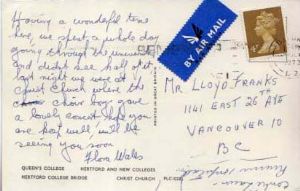 Having a wonderful time
here, we spent a whole day
going through the
and didn't see half of it
last night we were at
Christ Church where the
choir boys gave
a lovely concert hope you
are feeling well, will be
seeing you soon
Flora Wales
BY AIR MAIL
Mr Lloyd Franks
1141 East 26th Ave
Vancouver 10
BC
QUEEN'S COLLEGE HERTFORD AND NEW COLLEGES
HERTFORD COLLEGE BRIDGE CHRIST CHURCH